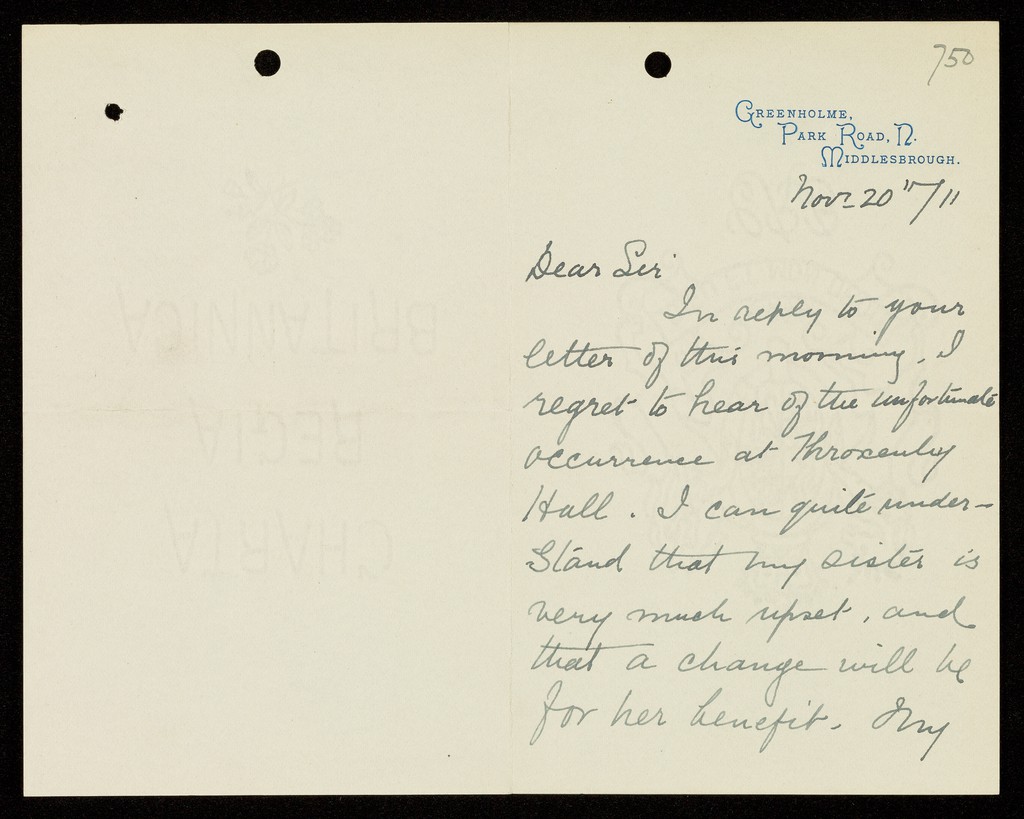 750
GREENHOLME,
PARK ROAD, N.
MIDDLESBROUGH.
Novr 20th/11
Dear Sir
In reply to your
letter of this morning, I
regret to hear of the unfortunate
occurrence at Throxenby
Hall. I can quite under-
stand that my sister is
very much upset, and
that a change will be
for her benefit. My
BRITANNICA
REGIA
CHARTA